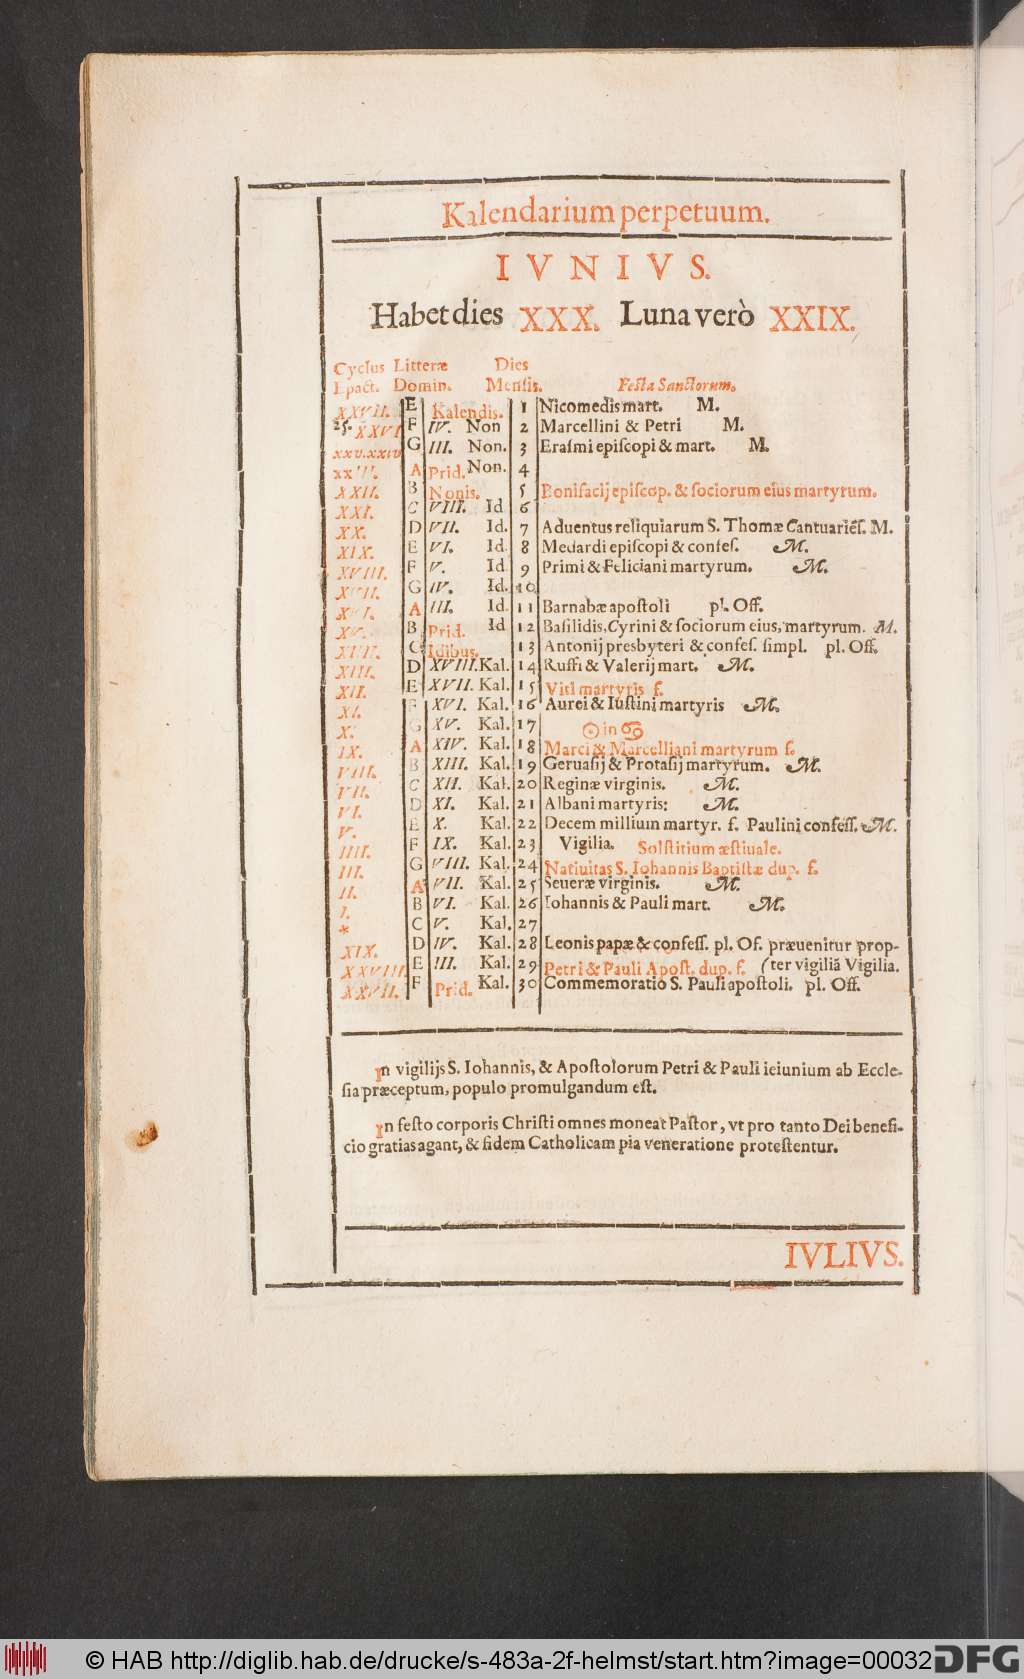 Kalendarium perpetuum.
IVNIVS.
Habet dies XXX. Luna verò XXIX.
Cyclus Litteræ Dies
Epact. Domin. Mensis. Festa Sanctorum.
XXVII. E Kalendis. 1 Nicomedis mart. M.
25. XXVI F IV. Non 2 Marcellini & Petri M.
xxv.xxiv G III. Non. 3 Erasmi episcopi & mart. M.
A Prid. Non. 4
XXII. B Nonis. 5 Bonifacij episcop. & sociorum eius martyrum.
XXI. C VIII. Id 6
XX. D VII. Id. 7 Aduentus reliquiarum S. Thomæ Cantuariẽs. M.
XIX. E VI. Id. 8 Medardi episcopi & confes. M.
XVIII. F V. Id 9 Primi & Feliciani martyrum. M.
G IV. Id. 10
A III. Id 11 Barnabæ apostoli pl. Off.
XV. B Prid. Id 12 Basilidis, Cyrini & sociorum eius, martyrum. M.
C Idibus. 13 Antonij presbyteri & confes. simpl. pl. Off.
XIII. D XVIII. Kal. 14 Ruffi & Valerij mart. M.
XII. E XVII. Kal. 15 Viti martyris f.
XI. F XVI. Kal. 16 Aurei & Iustini martyris M.
X. G XV. Kal. 17 ☉ in ♋
IX. A XIV. Kal. 18 Marci & Marcelliani martyrum f.
VIII. B XIII. Kal. 19 Geruasij & Protasij martyrum. M.
VII. C XII. Kal. 20 Reginæ virginis. M.
VI. D XI. Kal. 21 Albani martyris: M.
V. E X. Kal. 22 Decem millium martyr. f. Paulini confess. M.
IIII. F IX. Kal. 23 Vigilia. Solstitium æstiuale.
III. G VIII. Kal. 24 Natiuitas S. Iohannis Baptistæ dup. f.
II. A VII. Kal. 25 Seueræ virginis. M.
I. B VI. Kal. 26 Iohannis & Pauli mart. M.
* C V. Kal. 27
XIX. D IV. Kal. 28 Leonis papæ & confess. pl. Of. præuenitur prop-
XXVIII E III. Kal. 29 Petri & Pauli Apost. dup. f. (ter vigiliã Vigilia.
XXVII. F Prid. Kal. 30 Commemoratio S. Pauli apostoli. pl. Off.
In vigilijs S. Iohannis, & Apostolorum Petri & Pauli ieiunium ab Eccle-
sia præceptum, populo promulgandum est.
In festo corporis Christi omnes moneat Pastor, vt pro tanto Dei benefi-
cio gratias agant, & fidem Catholicam pia veneratione protestentur.
IVLIVS.
© HAB http://diglib.hab.de/drucke/s-483a-2f-helmst/start.htm?image=00032 DFG